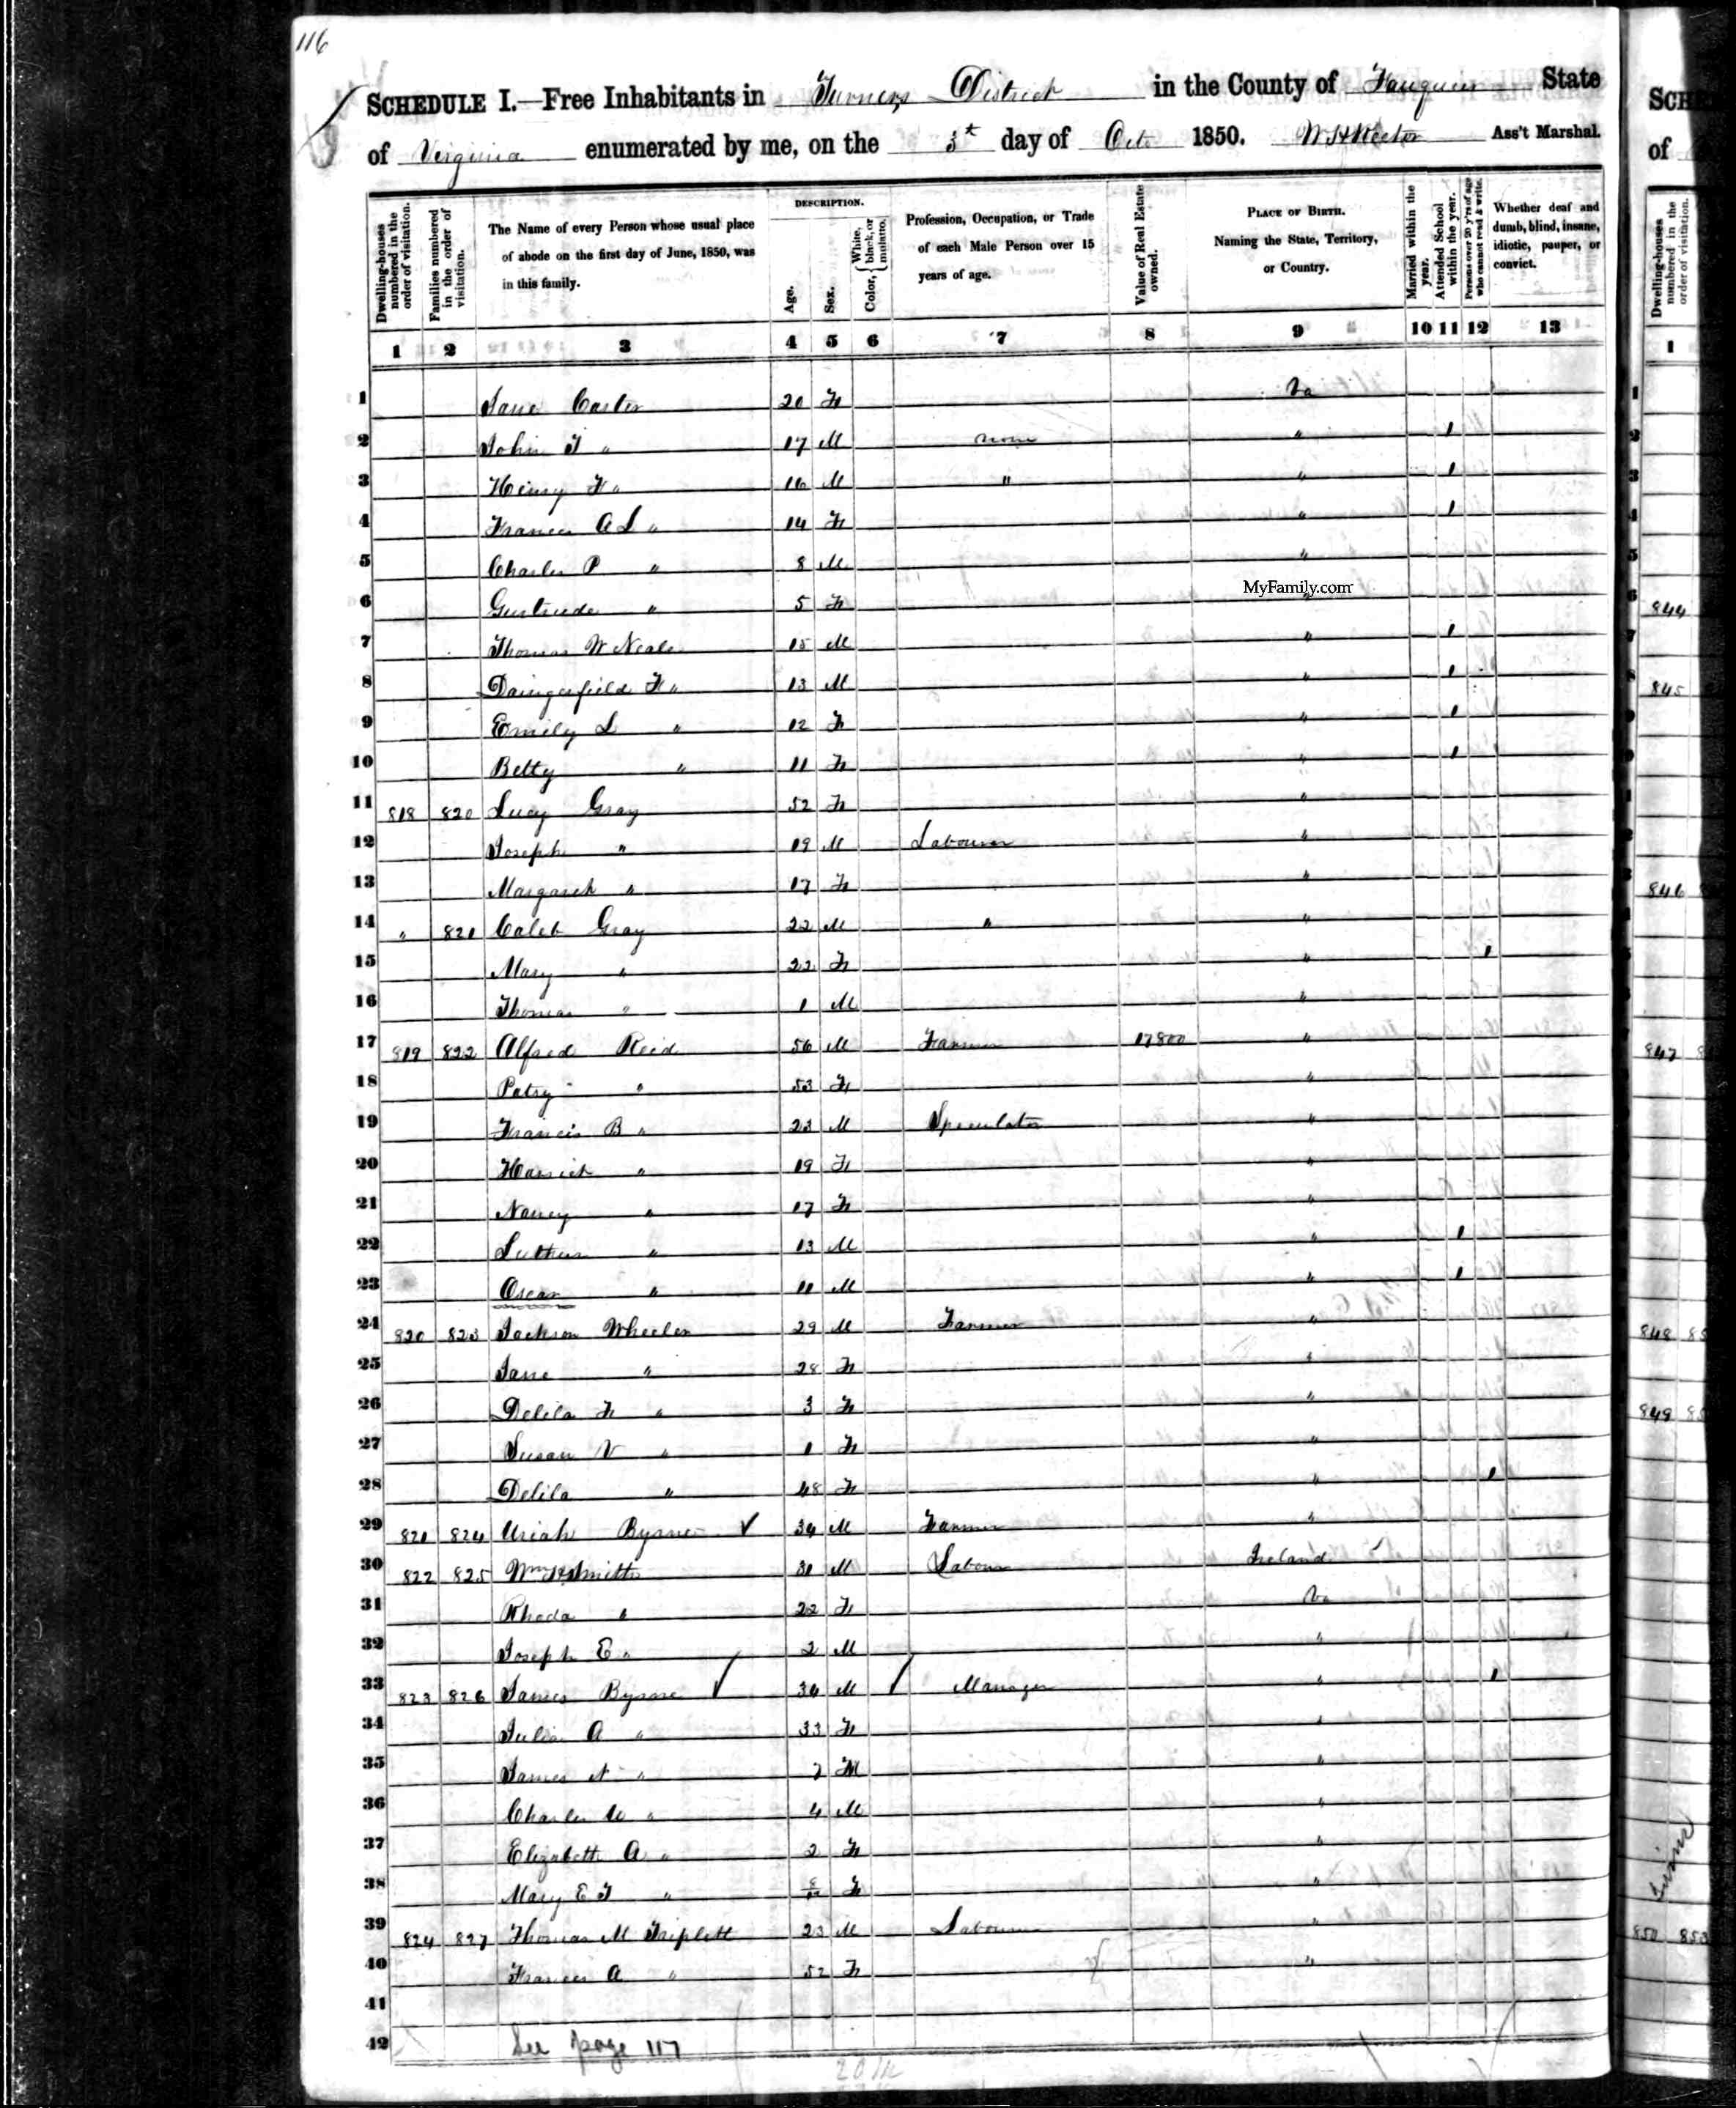 116
SCHEDULE I.—Free Inhabitants in Turners District in the County of Fauquier State
of Virginia enumerated by me, on the 3t day of Oct 1850. W H Rector Ass't Marshal.
Dwelling-houses numbered in the order of visitation.
Families numbered in the order of visitation.
The Name of every Person whose usual place of abode on the first day of June, 1850, was in this family.
DESCRIPTION.
Age.
Sex.
Color, { White, black, or mulatto.
Profession, Occupation, or Trade of each Male Person over 15 years of age.
Value of Real Estate owned.
PLACE OF BIRTH. Naming the State, Territory, or Country.
Married within the year.
Attended School within the year.
Persons over 20 y'rs of age who cannot read & write.
Whether deaf and dumb, blind, insane, idiotic, pauper, or convict.
1 2 3 4 5 6 7 8 9 10 11 12 13
1 Jane Carter 20 F Va
2 John T " 17 M none " 1
3 Henry F " 16 M " " 1
4 Frances A L " 14 F " 1
5 Charles P " 8 M "
MyFamily.com
6 Gertrude " 5 F "
7 Thomas W Neale 15 M " 1
8 Daingerfield F " 13 M " 1
9 Emily L " 12 F " 1
10 Betty " 11 F " 1
11 818 820 Lucy Gray 52 F "
12 Joseph " 19 M Labourer "
13 Margaret " 17 F "
14 " 821 Caleb Gray 22 M " "
15 Mary " 22 F " 1
16 Thomas " 1 M "
17 819 822 Alfred Reid 56 M Farmer 17800 "
18 Patsy " 53 F "
19 Francis B " 23 M Speculator "
20 Harriet " 19 F "
21 Nancy " 17 F "
22 Luther " 13 M " 1
23 Oscar " 11 M " 1
24 820 823 Jackson Wheeler 29 M Farmer "
25 Jane " 28 F "
26 Delila F " 3 F "
27 Susan V " 1 F "
28 Delila " 48 F " 1
29 821 824 Uriah Byrne 34 M Farmer "
30 822 825 Wm H Smith 31 M Labour Ireland
31 Rhoda " 22 F Va
32 Joseph E " 2 M "
33 823 826 James Byrne 34 M Manager " 1
34 Julia A " 33 F "
35 James N " 7 M "
36 Charles W " 4 M "
37 Elizabeth A " 2 F "
38 Mary E T " F "
39 824 827 Thomas M Triplett 23 M Labourer "
40 Frances A " 52 F "
41
42
See page 117
SCHE
of
Dwelling-houses numbered in the order of visitation.
1
844
845
846
847
848
849
850 853